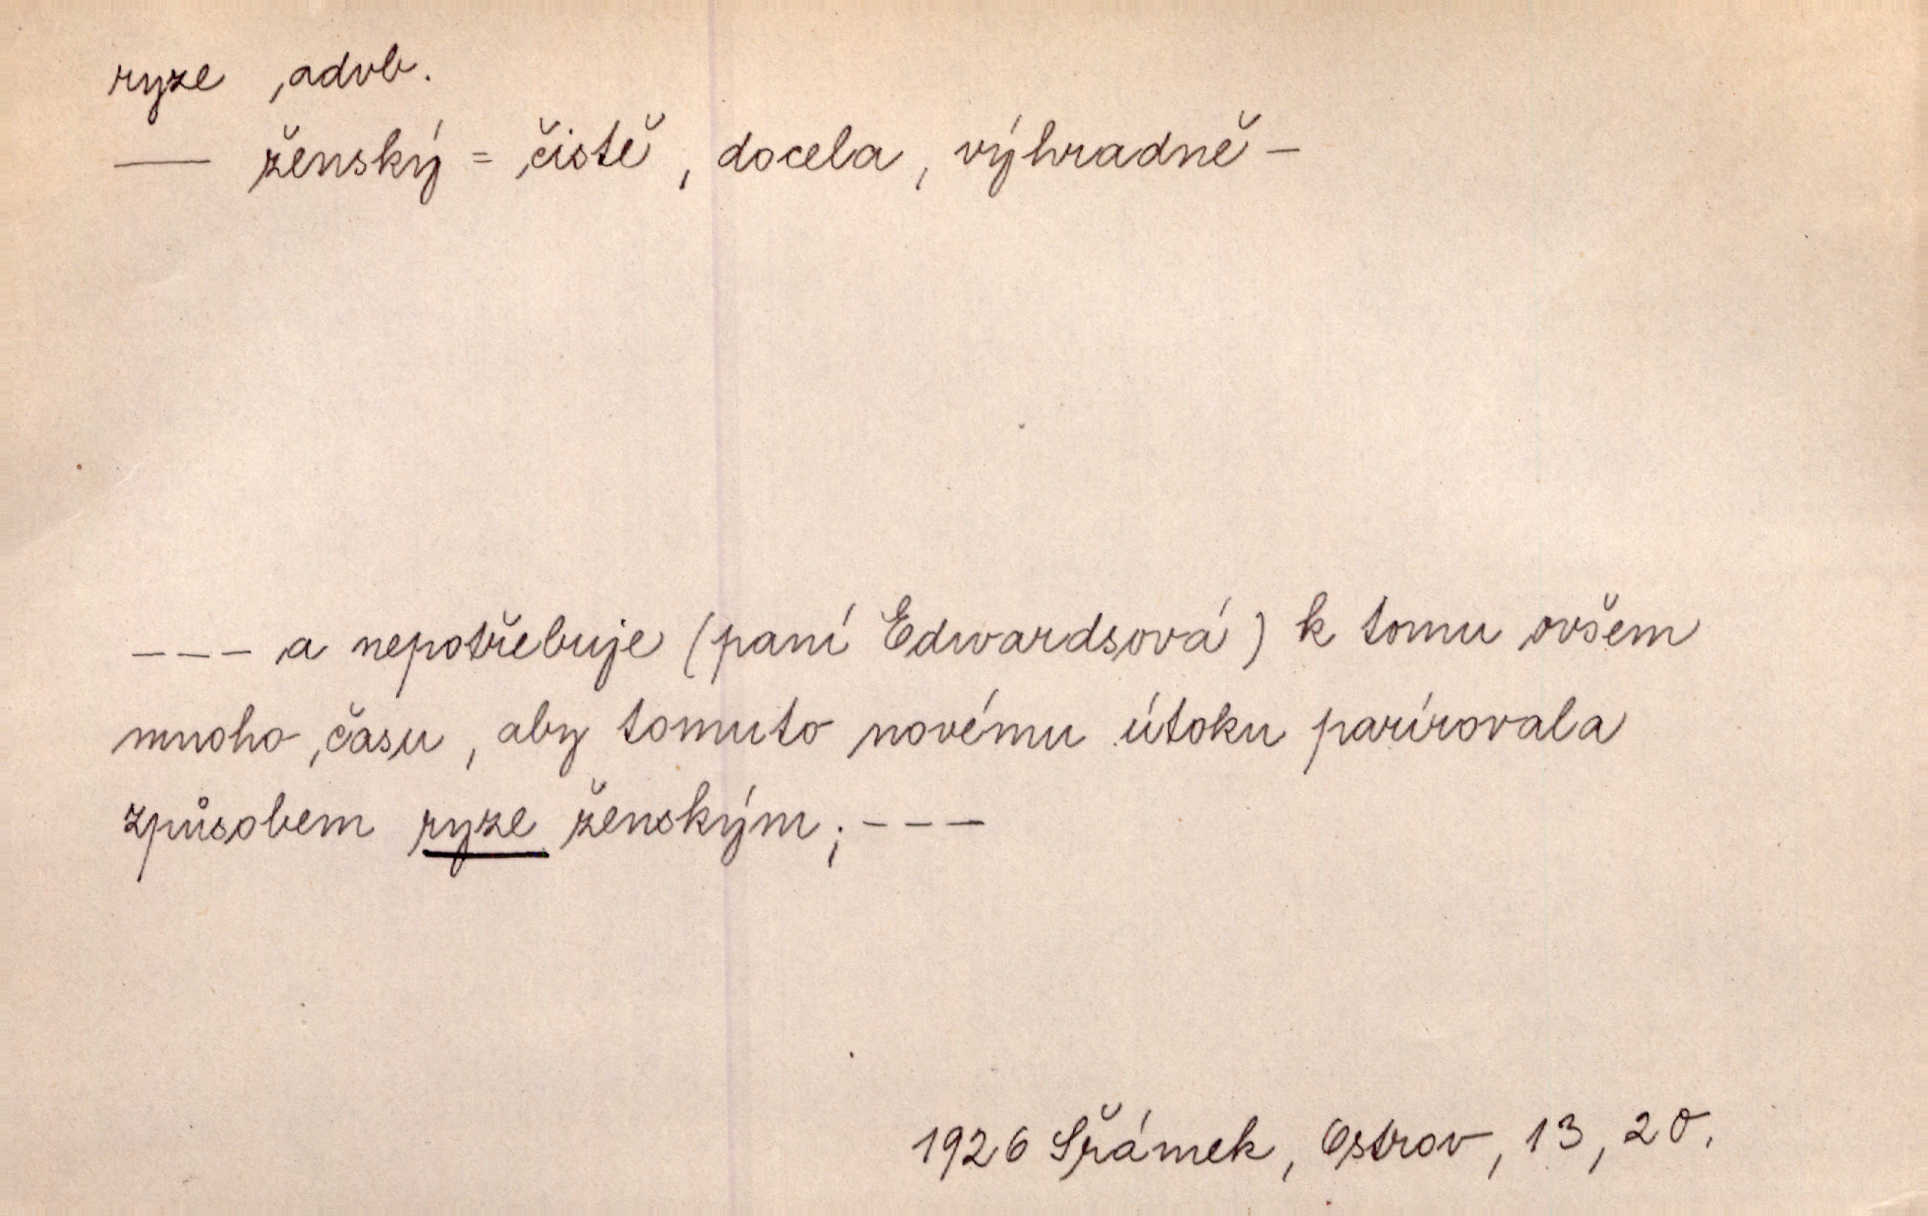 ryze, advb.
— ženský = čistě, docela, výhradně –
--- a nepotřebuje (paní Edwardsová) k tomu ovšem
mnoho času, aby tomuto novému útoku parírovala
způsobem ryze ženským; ---
1926 Šrámek, Ostrov, 13, 20.